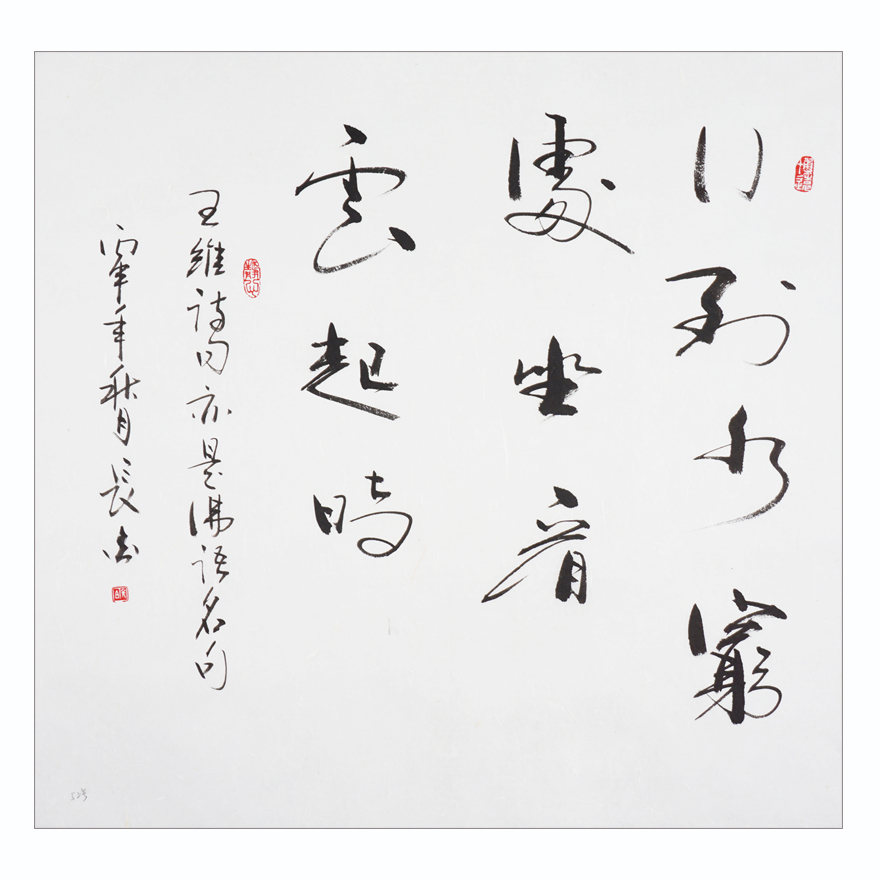 行到水窮
處坐看
雲起時
王維詩句亦是佛語名句
丙年秋月長